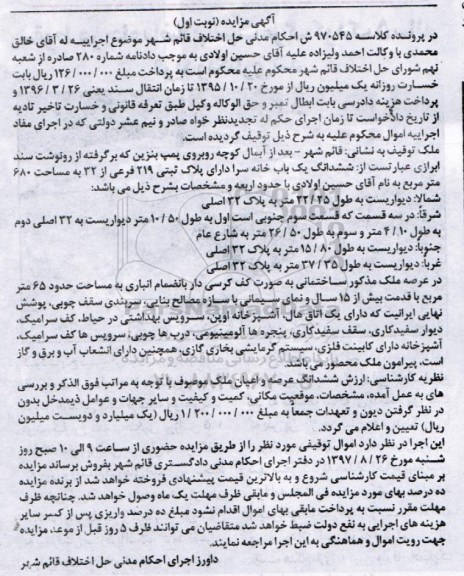 آگهی مزایده (نوبت اول)
در پرونده کلاسه ۹۷۰۵۴۵ ش احکام مدنی حل اختلاف قائم شهر موضوع اجراییه له آقای خالق
محمدی با وکالت احمد ولیزاده علیه آقای حسین اولادی به موجب دادنامه شماره ۲۸۰ صادره از شعبه
نهم شورای حل اختلاف قائم شهر محکوم علیه محکوم است به پرداخت مبلغ ۱۲۶/۰۰۰/۰۰۰ ریال بابت
خسارت روزانه یک میلیون ریال از مورخ ۲۰ / ۱۰ / ۱۳۹۵ تا زمان انتقال سند یعنی ۲۶ / ۳ / ۱۳۹۶ و
پرداخت هزینه دادرسی بابت ابطال تمبر و حق الوکاله وکیل طبق تعرفه قانونی و خسارت تاخیر تادیه
از تاریخ دادخواست تا زمان اجرای حکم له تجدیدنظر خواه صادر و نیم عشر دولتی که در اجرای مفاد
اجراییه اموال محکوم علیه به شرح ذیل توقیف گردیده است.
ملک توقیف به نشانی: قائم شهر - بعد از آبمال کوچه روبروی پمپ بنزین که برگرفته از رونوشت سند
ابرازی عبارتست از: ششدانگ یک باب خانه سرا دارای پلاک ثبتی ۲۱۹ فرعی از ۳۲ به مساحت ۶۸۰
متر مربع به نام آقای حسین اولادی با حدود اربعه و مشخصات بشرح ذیل می باشد:
شمالا: دیواریست به طول ۲۵ / ۲۲ متر به پلاک ۳۲ اصلی
شرقا: در سه قسمت که قسمت دوم جنوبی است اول به طول ۵۰ / ۱۰ متر دیواریست به ۳۲ اصلی دوم
به طول ۱۰ / ۴ متر و سوم به طول ۵۰ / ۲۶ متر به شارع عام
جنوبا: دیواریست به طول ۸۰ / ۱۵ متر به پلاک ۳۲ اصلی
غربا: دیواریست به طول ۳۵ / ۳۷ متر به پلاک ۳۲ اصلی
در عرصه ملک مذکور ساختمانی به صورت کف کرسی دار بانضمام انباری به مساحت حدود ۶۵ متر
مربع با قدمت بیش از ۱۵ سال و نمای سیمانی با سازه مصالح بنایی، سربندی سقف چوبی، پوشش
نهایی ایرانیت که دارای یک اتاق هال، آشپزخانه اوپن، سرویس بهداشتی در حیاط، کف سرامیک،
دیوار سفیدکاری، سقف سفیدکاری، پنجره ها آلومینیومی، درب ها چوبی، سرویس ها کف سرامیک،
آشپزخانه دارای کابینت فلزی، سیستم گرمایشی بخاری گازی، همچنین دارای انشعاب آب و برق و گاز
است، پیرامون ملک محصور می باشد.
نظریه کارشناسی: ارزش ششدانگ عرصه و اعیان ملک موصوف با توجه به مراتب فوق الذکر و بررسی
های به عمل آمده، مشخصات، موقعیت مکانی، کمیت و کیفیت و سایر جهات و عوامل ذیمدخل بدون
در نظر گرفتن دیون و تعهدات جمعا به مبلغ ۰۰۰ / ۰۰۰ / ۲۰۰ / ۱ ریال (یک میلیارد و دویست میلیون
ریال) تعیین و اعلام می گردد.
این اجرا در نظر دارد اموال توقیفی مورد نظر را از طریق مزایده حضوری از ساعت ۹ الی ۱۰ صبح روز
شنبه مورخ ۲۶ / ۸ / ۱۳۹۷ در دفتر اجرای احکام مدنی دادگستری قائم شهر بفروش برساند مزایده
بر مبنای قیمت کارشناسی شروع و به بالاترین قیمت پیشنهادی فروخته خواهد شد از برنده مزایده
ده درصد بهای مورد مزایده فی المجلس و مابقی ظرف مهلت یک ماه وصول خواهد شد. چنانچه ظرف
مهلت مقرر نسبت به پرداخت مابقی بهای اموال اقدام نشود مبلغ ده درصد واریزی پس از کسر سایر
هزینه های اجرایی به نفع دولت ضبط خواهد شد متقاضیان می توانند ظرف ۵ روز قبل از موعد مزایده
جهت رویت اموال و هماهنگی به این اجرا مراجعه نمایند.
داورز اجرای احکام مدنی حل اختلاف قائم شهر